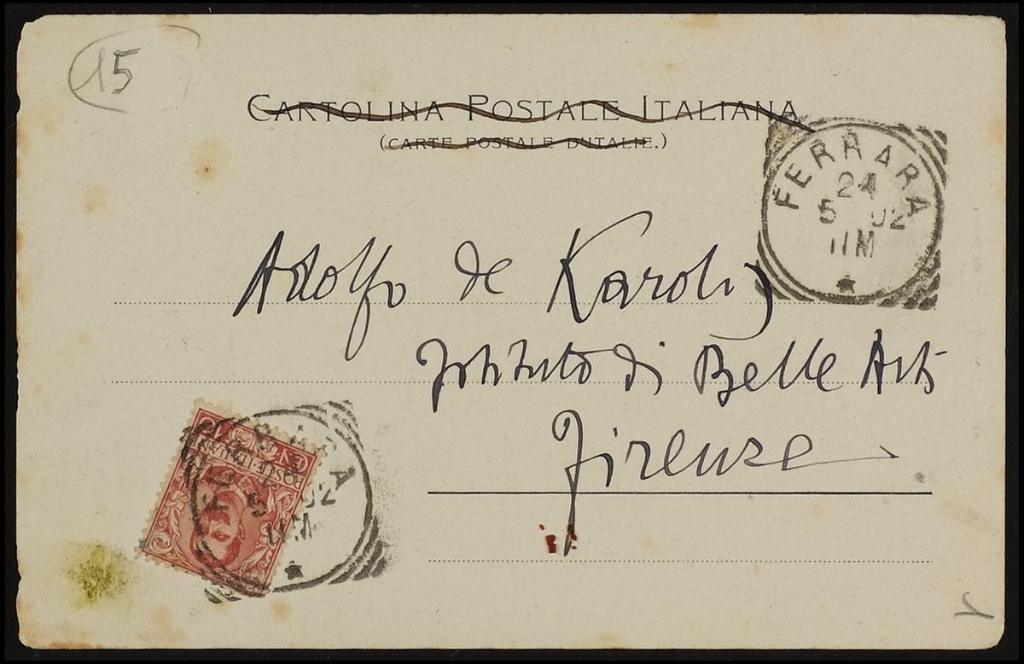 15
CARTOLINA POSTALE ITALIANA
(CARTE POSTALE D'ITALIE.)
FERRARA
24
5 02
11M
Adolfo de Karolis
Istituto di Belle Arti
Firenze
POSTE ITALIANE